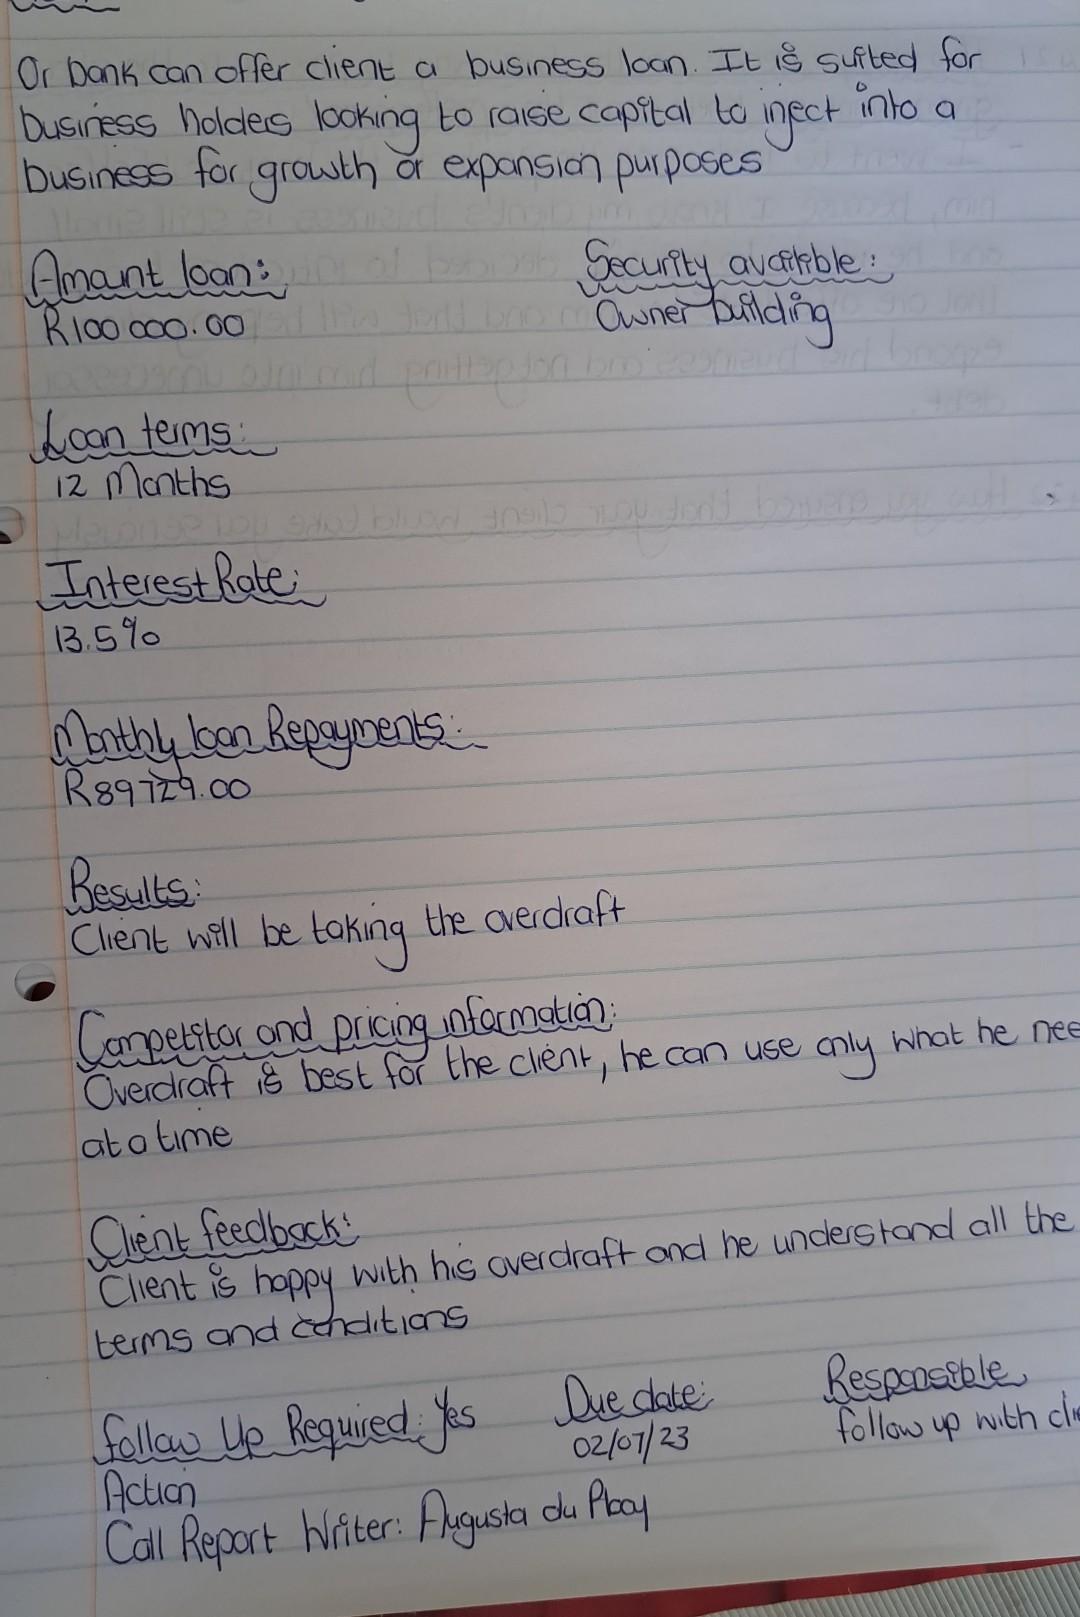 Or bank can offer client a business loan. It is suited for
business holders looking to raise capital to inject into a
business for growth or expansion purposes
Amount loan:
Security available:
R100 000.00
Owner building
Loan terms:
12 Months
Interest Rate:
13.5%
Monthly loan Repayments:
R89729.00
Results:
Client will be taking the overdraft
Competitor and pricing information:
Overdraft is best for the client, he can use only what he nee
at a time
Client feedback:
Client is happy with his overdraft and he understand all the
terms and conditions
Follow Up Required: Yes
Due date:
Responsible
02/07/23
follow up with clie
Action
Call Report Writer: Augusta du Plooy